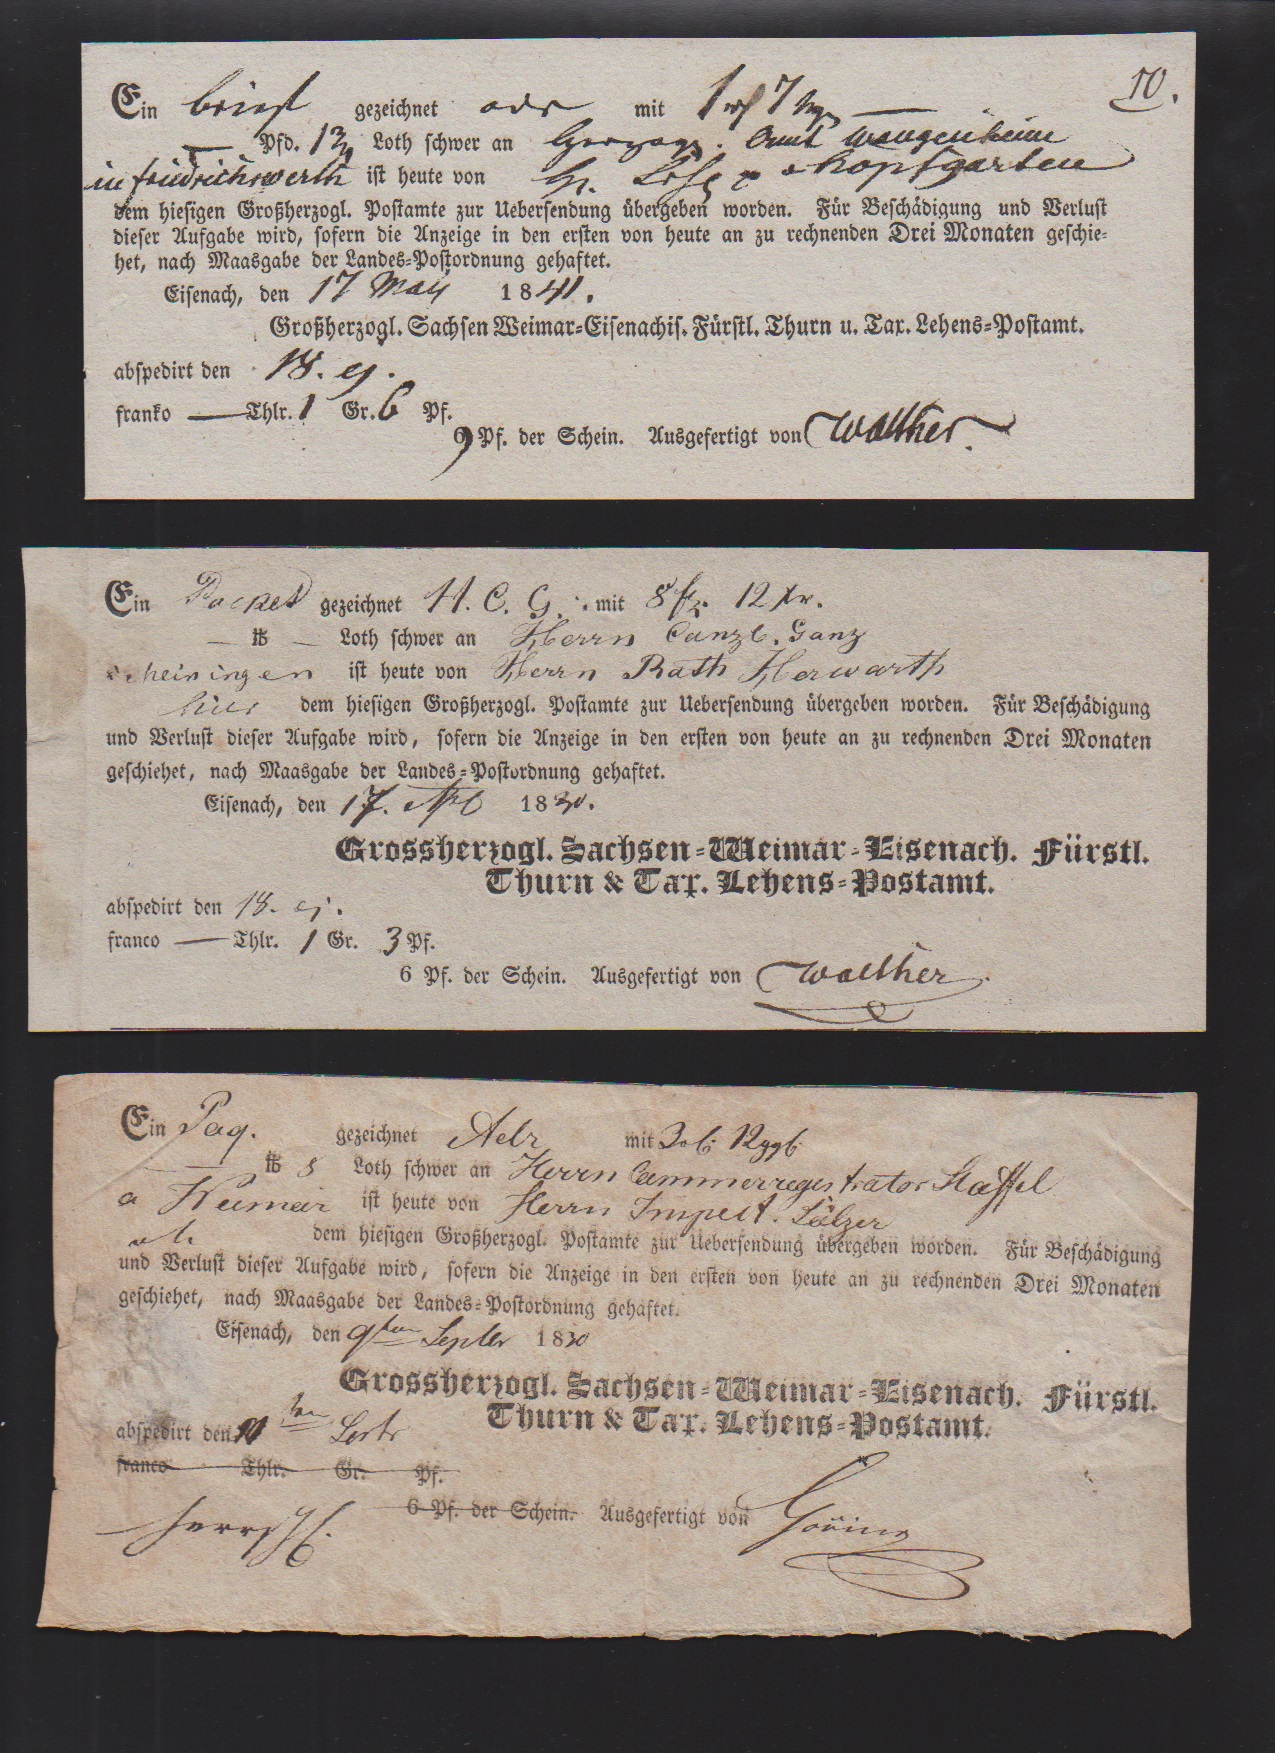 10.
Ein brief gezeichnet adr mit 1 rß 7
Pfd. Loth schwer an Herzogl. Amt Wangenheim
in friedrichswerth ist heute von H. Hopfgarten
dem hiesigen Großherzogl. Postamte zur Uebersendung übergeben worden. Für Beschädigung und Verlust
dieser Aufgabe wird, sofern die Anzeige in den ersten von heute an zu rechnenden Drei Monaten geschie=
het, nach Maasgabe der Landes=Postordnung gehaftet.
Eisenach, den 17 May 1841.
Großherzogl. Sachsen Weimar=Eisenachis. Fürstl. Thurn u. Tax. Lehens=Postamt.
abspedirt den 18. ej.
franko — Thlr. 1 Gr. 6 Pf.
9 Pf. der Schein. Ausgefertigt von Walther.
Ein Packet gezeichnet H. C. G. mit 8 fl. 12 xr.
— ℔ — Loth schwer an Herrn Canzl. Ganz
Meiningen ist heute von Herrn Rath Herwarth
hier dem hiesigen Großherzogl. Postamte zur Uebersendung übergeben worden. Für Beschädigung
und Verlust dieser Aufgabe wird, sofern die Anzeige in den ersten von heute an zu rechnenden Drei Monaten
geschiehet, nach Maasgabe der Landes=Postordnung gehaftet.
Eisenach, den 17. 1830.
Grossherzogl. Sachsen=Weimar=Eisenach. Fürstl.
Thurn & Tax. Lehens=Postamt.
abspedirt den 18. ej.
franco — Thlr. 1 Gr. 3 Pf.
6 Pf. der Schein. Ausgefertigt von Walther
Ein Paq. gezeichnet Adr mit 12 ggl.
℔ 8 Loth schwer an Herrn Cammerregistrator Staffel
a Weimar ist heute von Herrn Impect. Sälzer
dem hiesigen Großherzogl. Postamte zur Uebersendung übergeben worden. Für Beschädigung
und Verlust dieser Aufgabe wird, sofern die Anzeige in den ersten von heute an zu rechnenden Drei Monaten
geschiehet, nach Maasgabe der Landes=Postordnung gehaftet.
Eisenach, den 9ten Septbr 1830
Grossherzogl. Sachsen=Weimar=Eisenach. Fürstl.
Thurn & Tax. Lehens=Postamt.
abspedirt den 10ten Septr
franco Thlr. Gr. Pf.
6 Pf. der Schein. Ausgefertigt von Göring